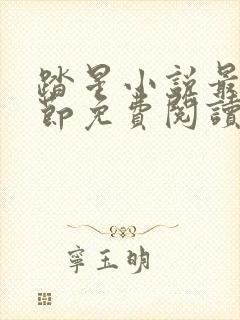 踏星小說最
節免費閱讀
寧玉明